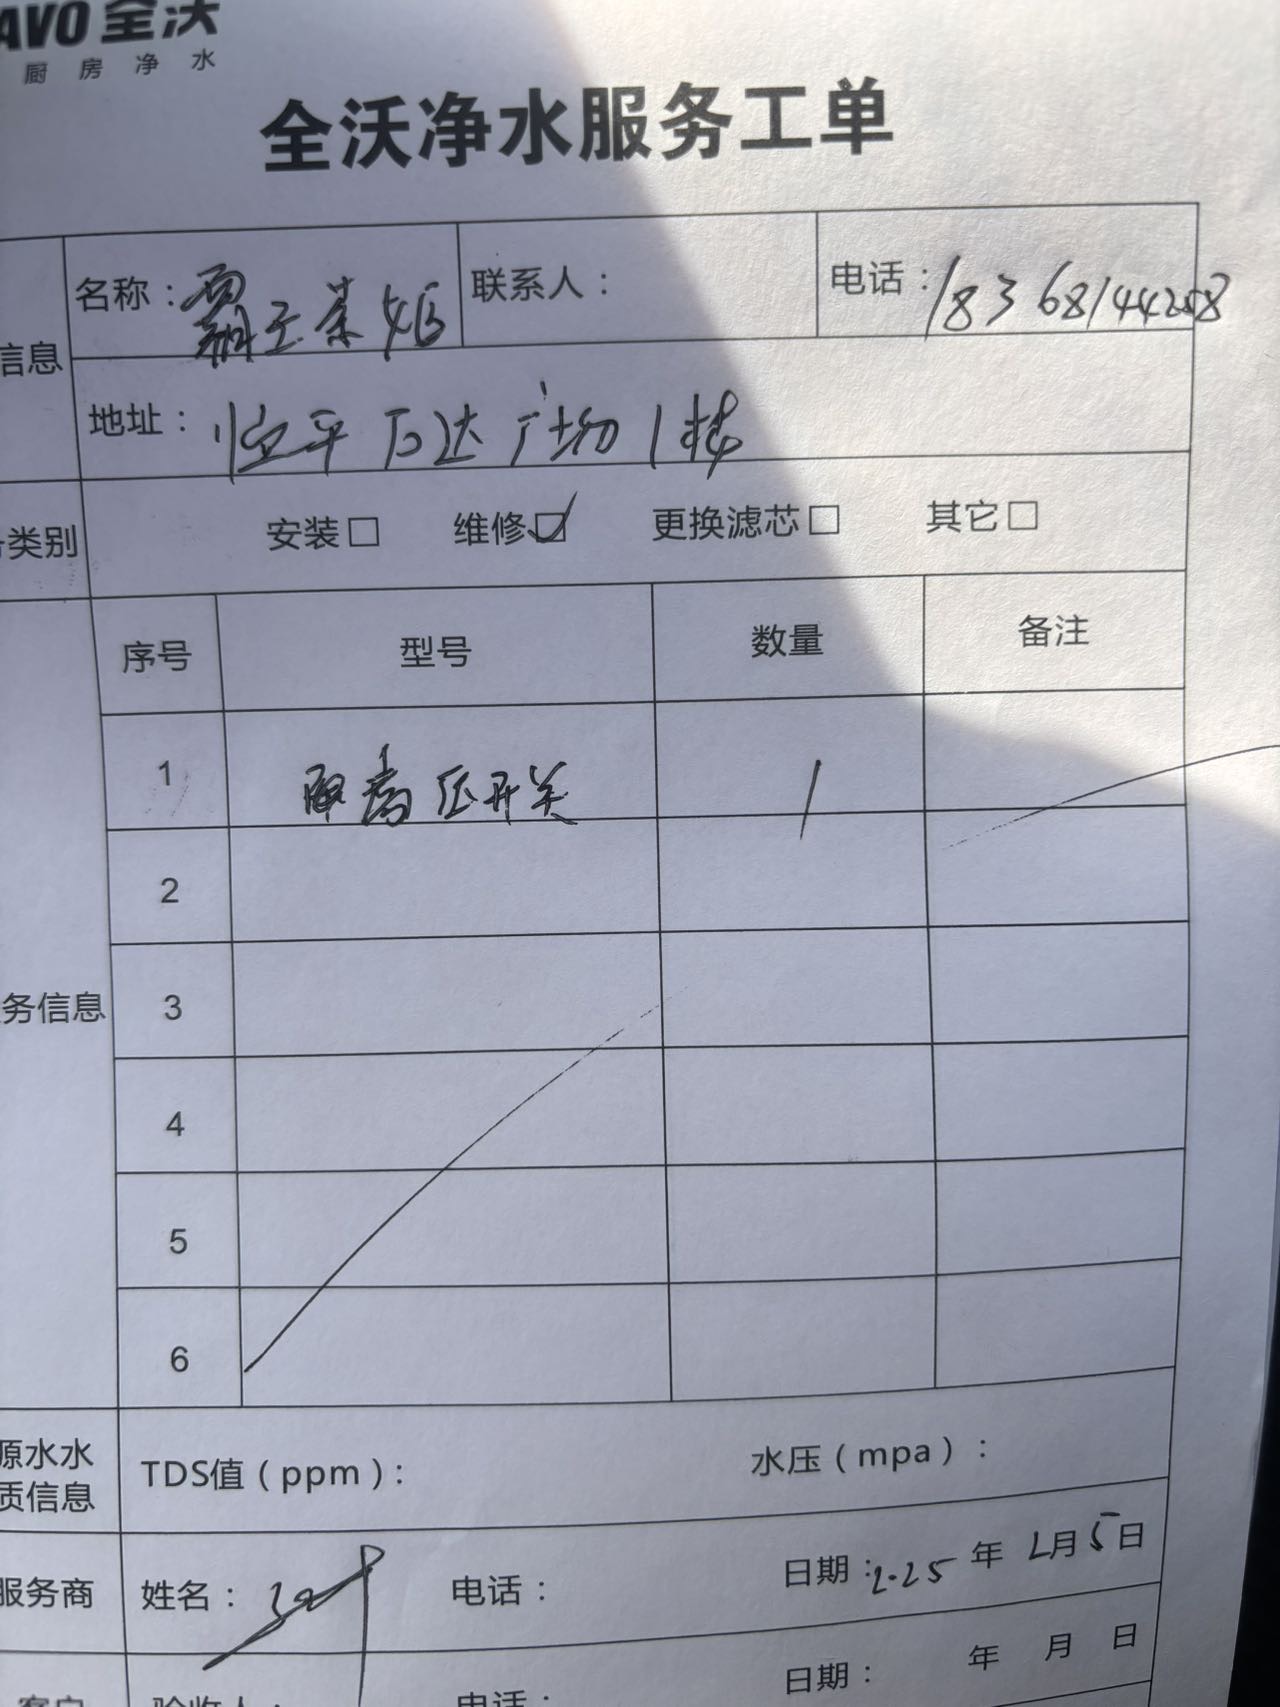 AVO 全沃
厨房净水
全沃净水服务工单
名称：霸王茶姬 联系人： 电话：18368144258
信息
地址：临平万达广场1栋
类别 安装□ 维修☑ 更换滤芯□ 其它□
序号 型号 数量 备注
1 高压开关 1
2
务信息 3
4
5
6
源水水
质信息
TDS值（ppm）： 水压（mpa）：
服务商 姓名： 电话： 日期：2025年2月5日
客户 验收人： 电话： 日期： 年 月 日